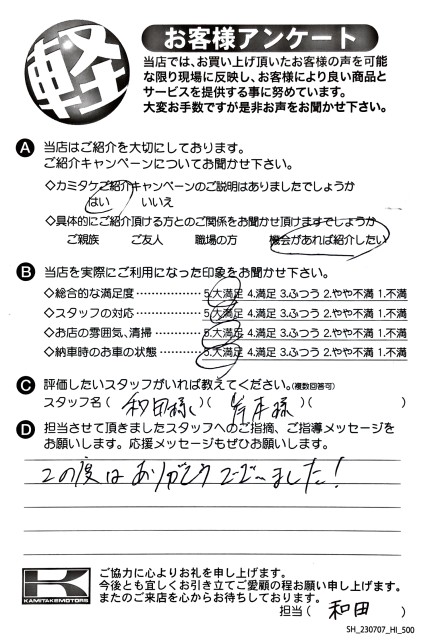 軽
お客様アンケート
当店では、お買い上げ頂いたお客様の声を可能
な限り現場に反映し、お客様により良い商品と
サービスを提供する事に努めています。
大変お手数ですが是非お声をお聞かせ下さい。
A 当店はご紹介を大切にしております。
ご紹介キャンペーンについてお聞かせ下さい。
◇カミタケご紹介キャンペーンのご説明はありましたでしょうか
はい いいえ
◇具体的にご紹介頂ける方とのご関係をお聞かせ頂けますでしょうか
ご親族 ご友人 職場の方 機会があれば紹介したい
B 当店を実際にご利用になった印象をお聞かせ下さい。
◇総合的な満足度……………5.大満足 4.満足 3.ふつう 2.やや不満 1.不満
◇スタッフの対応……………5.大満足 4.満足 3.ふつう 2.やや不満 1.不満
◇お店の雰囲気、清掃…………5.大満足 4.満足 3.ふつう 2.やや不満 1.不満
◇納車時のお車の状態…………5.大満足 4.満足 3.ふつう 2.やや不満 1.不満
C 評価したいスタッフがいれば教えてください。(複数回答可)
スタッフ名( 和田様 )( 岸本様 )( )
D 担当させて頂きましたスタッフへのご指摘、ご指導メッセージを
お願いします。応援メッセージもぜひお願いします。
この度はありがとうございました!
K
KAMITAKEMOTORS
ご協力に心よりお礼を申し上げます。
今後とも宜しくお引き立てご愛顧の程お願い申し上げます。
またのご来店を心からお待ちしております。
担当( 和田 )
SH_230707_HI_500